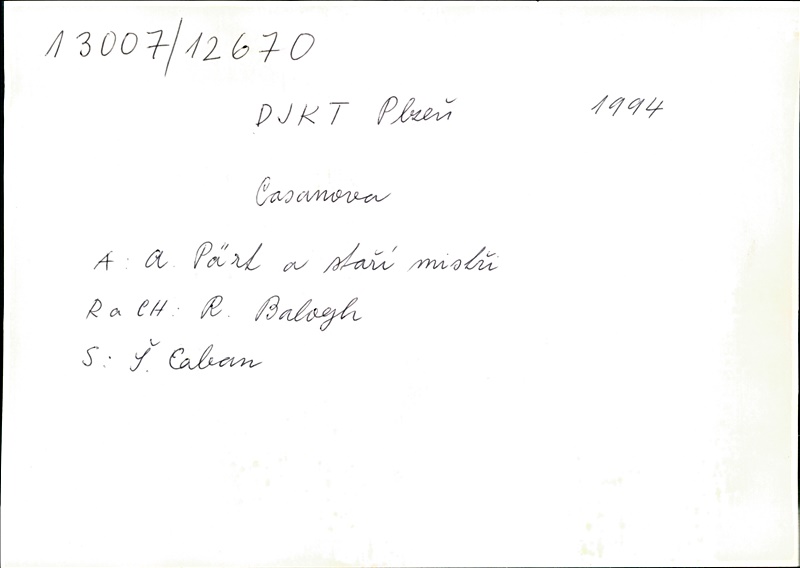 13007/12670
DJKT Plzeň 1994
Casanova
A: A. Pärt a staří mistři
R a CH: R. Balogh
S: Š. Caban